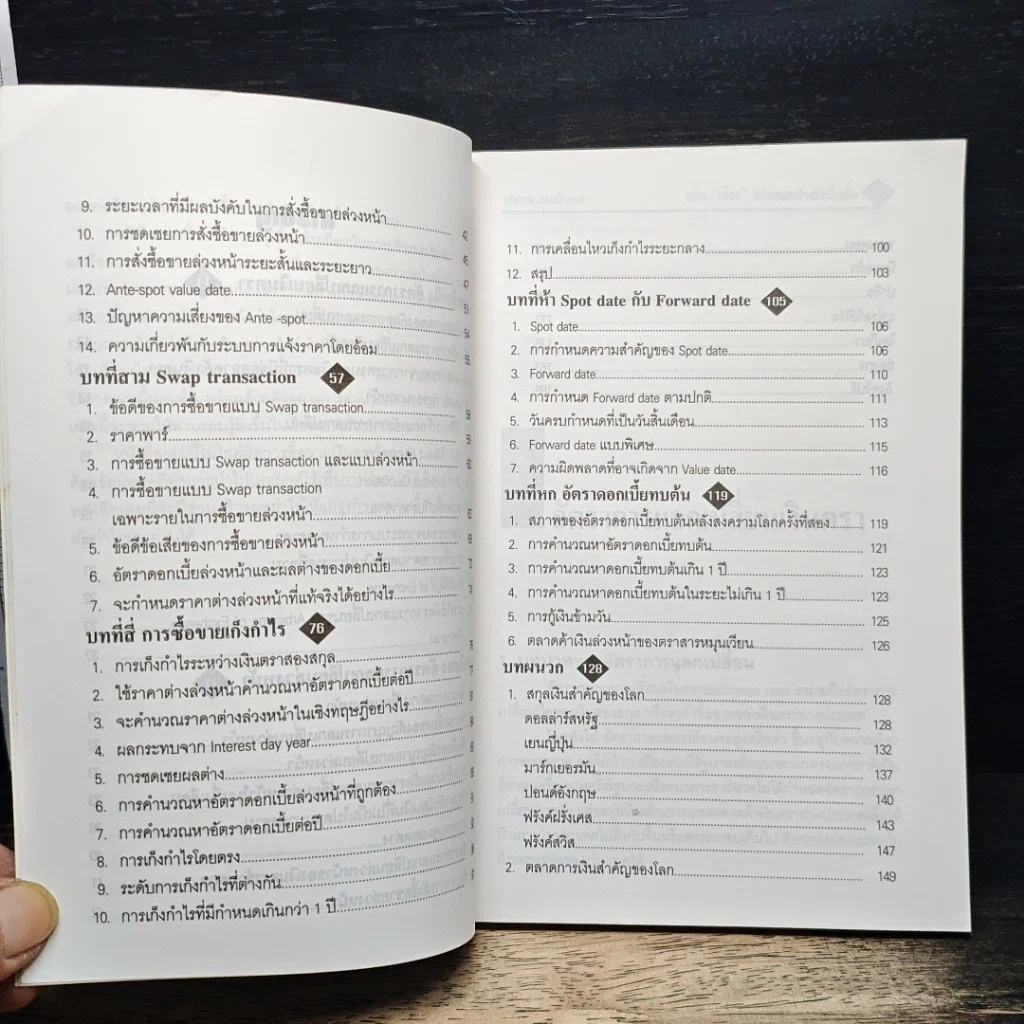 9. ระยะเวลาที่มีผลบังคับในการสั่งซื้อขายล่วงหน้า 42
10. การชดเชยการสั่งซื้อขายล่วงหน้า
11. การสั่งซื้อขายล่วงหน้าระยะสั้นและระยะยาว 47
12. Ante-spot value date 51
13. ปัญหาความเสี่ยงของ Ante -spot 54
14. ความเกี่ยวพันกับระบบการแจ้งราคาโดยอ้อม 55
บทที่สาม Swap transaction 57
1. ข้อดีของการซื้อขายแบบ Swap transaction
2. ราคาพาร์
3. การซื้อขายแบบ Swap transaction และแบบล่วงหน้า
4. การซื้อขายแบบ Swap transaction
เฉพาะรายในการซื้อขายล่วงหน้า
5. ข้อดีข้อเสียของการซื้อขายล่วงหน้า
6. อัตราดอกเบี้ยล่วงหน้าและผลต่างของดอกเบี้ย
7. จะกำหนดราคาต่างล่วงหน้าที่แท้จริงได้อย่างไร
บทที่สี่ การซื้อขายเก็งกำไร 76
1. การเก็งกำไรระหว่างเงินตราสองสกุล
2. ใช้ราคาต่างล่วงหน้าคำนวณหาอัตราดอกเบี้ยต่อปี
3. จะคำนวณราคาต่างล่วงหน้าในเชิงทฤษฎีอย่างไร
4. ผลกระทบจาก Interest day year
5. การชดเชยผลต่าง
6. การคำนวณหาอัตราดอกเบี้ยล่วงหน้าที่ถูกต้อง
7. การคำนวณหาอัตราดอกเบี้ยต่อปี
8. การเก็งกำไรโดยตรง
9. ระดับการเก็งกำไรที่ต่างกัน
10. การเก็งกำไรที่มีกำหนดเกินกว่า 1 ปี
11. การเคลื่อนไหวเก็งกำไรระยะกลาง 100
12. สรุป 103
บทที่ห้า Spot date กับ Forward date 105
1. Spot date 106
2. การกำหนดความสำคัญของ Spot date 106
3. Forward date 110
4. การกำหนด Forward date ตามปกติ 111
5. วันครบกำหนดที่เป็นวันสิ้นเดือน 113
6. Forward date แบบพิเศษ 115
7. ความผิดพลาดที่อาจเกิดจาก Value date 116
บทที่หก อัตราดอกเบี้ยทบต้น 119
1. สภาพของอัตราดอกเบี้ยทบต้นหลังสงครามโลกครั้งที่สอง 119
2. การคำนวณหาอัตราดอกเบี้ยทบต้น 121
3. การคำนวณหาดอกเบี้ยทบต้นเกิน 1 ปี 123
4. การคำนวณหาดอกเบี้ยทบต้นในระยะไม่เกิน 1 ปี 123
5. การกู้เงินข้ามวัน 125
6. ตลาดค้าเงินล่วงหน้าของตราสารหมุนเวียน 126
บทผนวก 128
1. สกุลเงินสำคัญของโลก 128
ดอลล่าร์สหรัฐ 128
เยนญี่ปุ่น 132
มาร์กเยอรมัน 137
ปอนด์อังกฤษ 140
ฟรังค์ฝรั่งเศส 143
ฟรังค์สวิส 147
2. ตลาดการเงินสำคัญของโลก 149